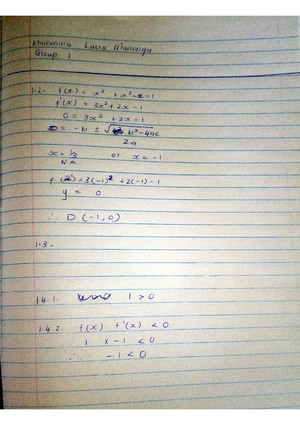 Lucia
Group 1
1.2. f(x) = x³ + x² - x - 1
f'(x) = 3x² + 2x - 1
0 = 3x² + 2x - 1
= -b ± √b² - 4ac
2a
x = 1/3 or x = -1
N.A
f(x) = 3(-1)² + 2(-1) - 1
y = 0
∴ D (-1,0)
1.3.
1.4.1. 1 > 0
1.4.2 f(x) . f'(x) < 0
1 x -1 < 0
∴ -1 < 0